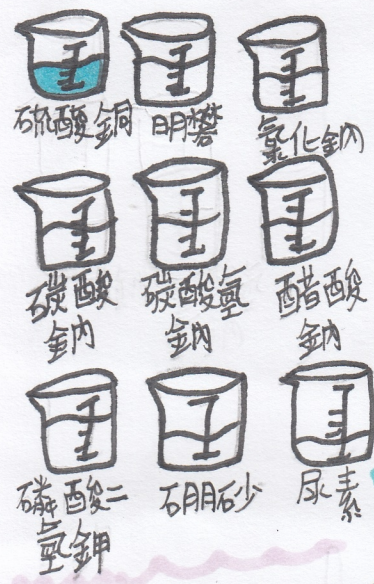 硫酸銅 明礬 氯化鈉
碳酸鈉 碳酸氫鈉 醋酸鈉
磷酸二氫鉀 硼砂 尿素